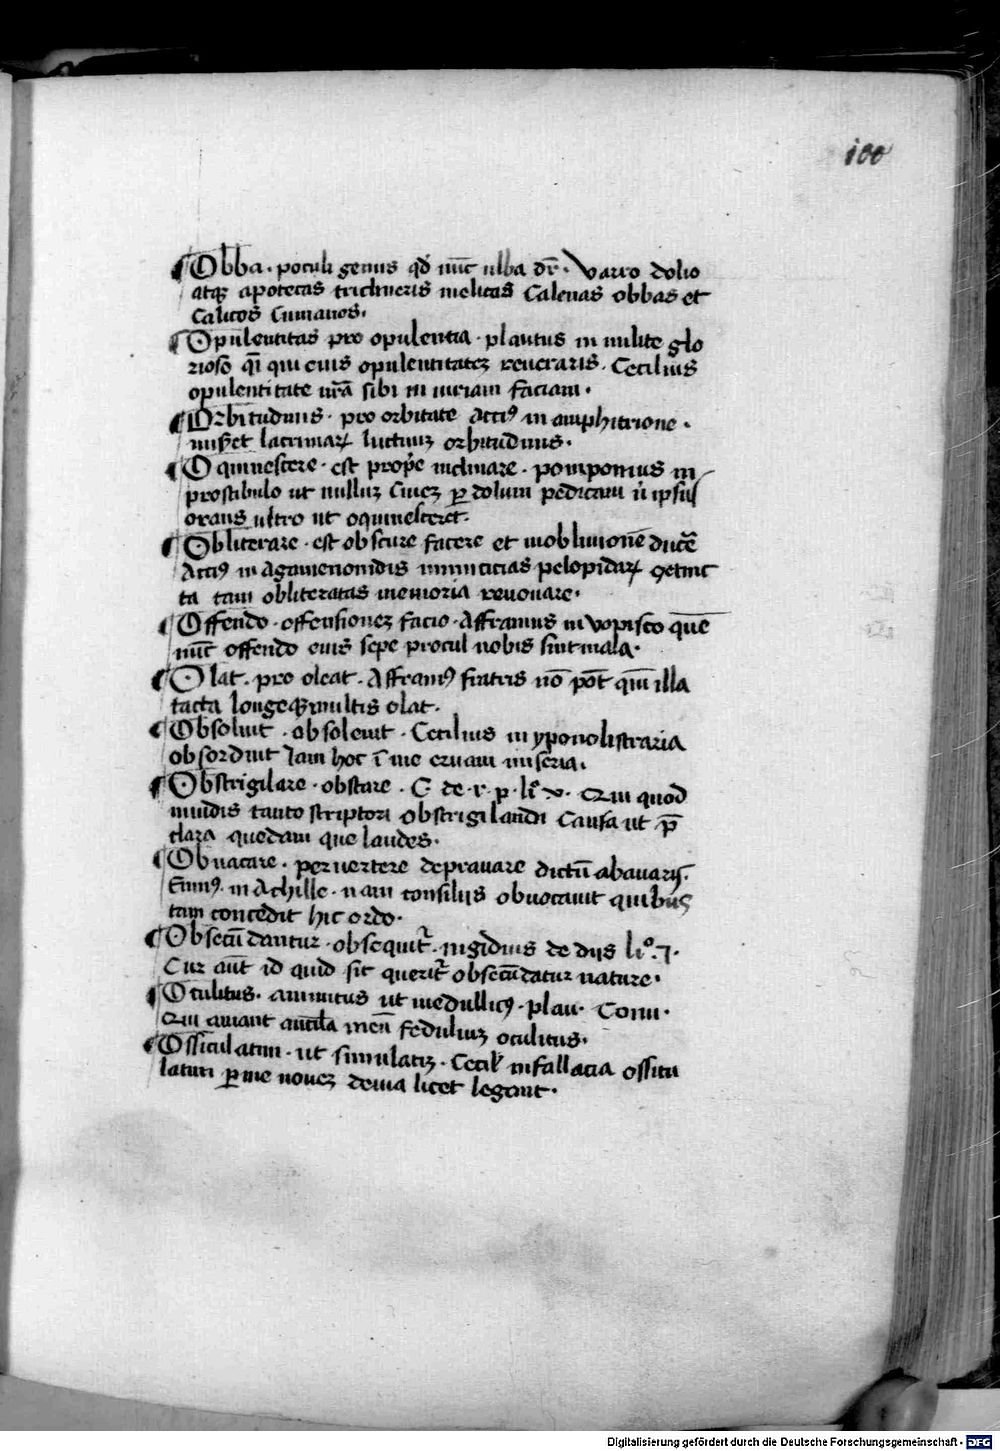 100
Obba · poculi genus qd nūc ulba dr̄ · Varro dolio
atqꝫ apotecas triclineris melicas Calenas obbas et
Calices Cumanos.
Opulentitas pro opulentia · plautus in milite glo
rioso qm̄ qui cuis opulentitateꝫ reueraris. Cecilius
opulentitate nrā sibi in iuriam faciam ·
Orbitudinis · pro orbitate Acciꝰ in amphitrione ·
lacrimaꝝ luctuꝫ orbitudinis ·
Oquinescere · est prop̄e inclinare · pomponius in
prostibulo ut nulluꝫ Ciueꝫ ꝑ dolum pedicaui n̄ ipsus
orans ultro ut oquinesceret ·
Obliterare · est obscure facere et inobliuionē ducē̄
Acciꝰ in Agamenonidis inimicicias pelopidaꝝ
ta tam obliteratas memoria renouare ·
Offendo · offensioneꝫ facio · Afframus in vopisco quē
nūc offendo eius sepe procul nobis sint mala ·
Olat · pro oleat · Afframꝰ fratris nō pōt qm̄ illa
tacta longe multis olat ·
Obsoluit · obsoleuit · Cecilius in yponolistraria
obsorduit Iam hoc ī me eruam miseria.
Obstrigilare · obstare · C · de · r · p · li · v · Qui quod
mundis tanto scriptori obstrigilandi Causa ut p̄
clara quedam que laudes ·
Obuacare · peruertere deprauare dictū abauarijs ·
Enniꝰ · in Achille · nam consilijs obuocauit quibus
tam concedit hic ordo ·
Obsecūdantur · obsequit̄r · nigidius de dijs liᵒ · j ·
Cur aūt id quid sit querit̄ obsecūdatur nature ·
Oculitus · animitus ut medullitꝰ · plau · Coru ·
Qui amant ancilla meā seduluꝫ oculitus ·
Ossiculatim · ut simulatiꝫ · Cecil̄ in fallacia ossicu
latim ꝑ me noueꝫ deuia licet legant ·
Digitalisierung gefördert durch die Deutsche Forschungsgemeinschaft · DFG